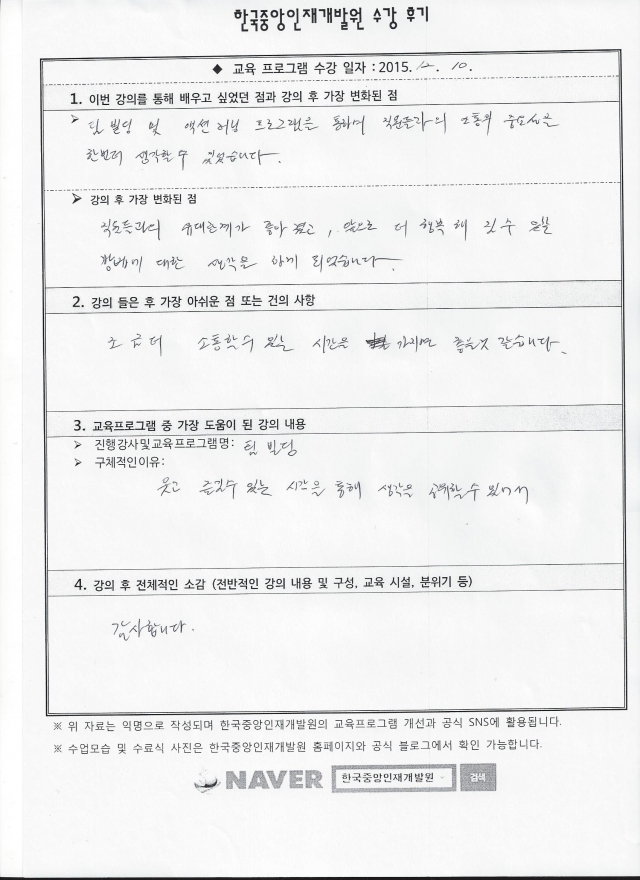 한국중앙인재개발원 수강 후기
◆ 교육 프로그램 수강 일자 : 2015. 12. 10.
1. 이번 강의를 통해 배우고 싶었던 점과 강의 후 가장 변화된 점
➢ 팀 빌딩 및 액션러닝 프로그램을 통하여 직원들과의 소통의 중요성을
한번더 생각할 수 있었습니다.
➢ 강의 후 가장 변화된 점
직원들과의 유대관계가 좋아 졌고, 앞으로 더 행복 해 질 수 있는
방법에 대한 생각을 하게 되었습니다.
2. 강의 들은 후 가장 아쉬운 점 또는 건의 사항
조금더 소통할수 있는 시간을 가지면 좋을것 같습니다.
3. 교육프로그램 중 가장 도움이 된 강의 내용
➢ 진행강사및교육프로그램명: 팀 빌딩
➢ 구체적인이유:
웃고 즐길수 있는 시간을 통해 생각을 할수 있어서
4. 강의 후 전체적인 소감 (전반적인 강의 내용 및 구성, 교육 시설, 분위기 등)
감사합니다.
※ 위 자료는 익명으로 작성되며 한국중앙인재개발원의 교육프로그램 개선과 공식 SNS에 활용됩니다.
※ 수업모습 및 수료식 사진은 한국중앙인재개발원 홈페이지와 공식 블로그에서 확인 가능합니다.
NAVER 한국중앙인재개발원 검색